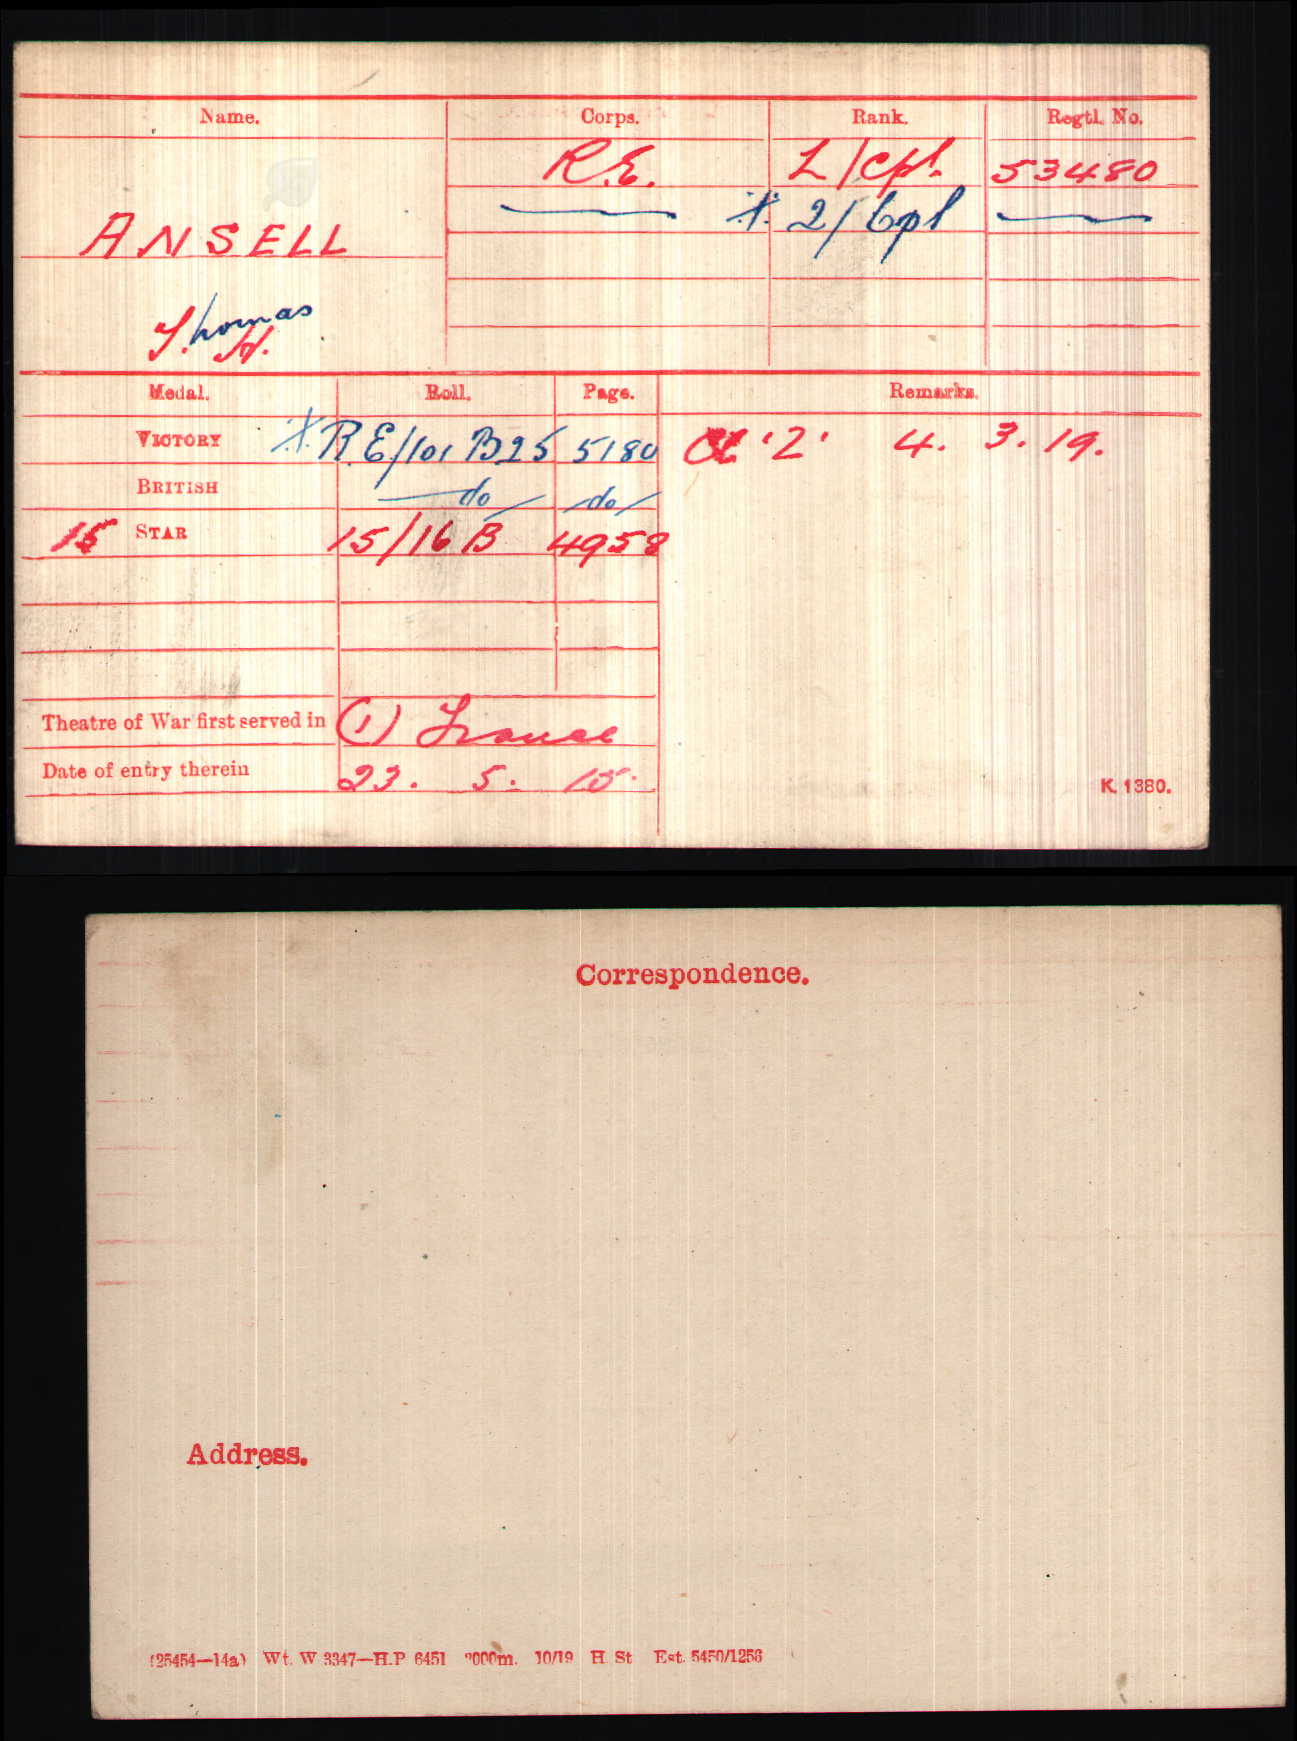 Name. Corps. Rank. Regtl. No.
R.E. L/Cpl. 53480
ANSELL × 2/Cpl
T.homas H.
Medal. Roll. Page. Remarks.
VICTORY × R.E/101 B25 5180 Cl 'Z' 4. 3. 19.
BRITISH do do
15 STAR 15/16 B 4958
Theatre of War first served in (1) France
Date of entry therein 23. 5. 15.
K. 1380.
Correspondence.
Address.
(25454—14a) Wt. W 3347—H.P 6451 2000m. 10/19 H. St Est. 5450/1256